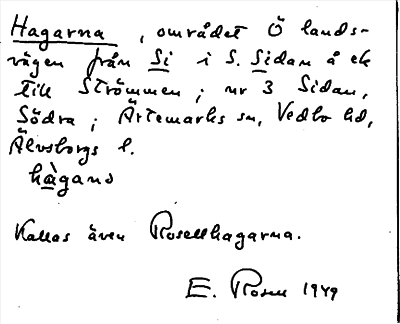 Hagarna, området Ö lands-
vägen från Si i S. Sidan å ek
till Strömmen; nr 3 Sidan,
Södra; Ärtemarks sn, Vedbo hd,
Älvsborgs l.
hàgana
Kallas även Rosellhagarna.
E. Rosell 1949